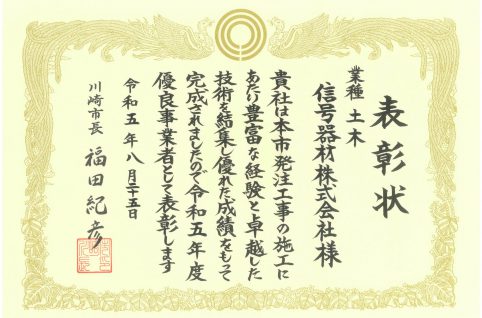 表彰状
業種 土木
信号器材株式会社様
貴社は本市発注工事の施工に
あたり豊富な経験と卓越した
技術を結集し優れた成績をもって
完成されましたので令和五年度
優良事業者として表彰します
令和五年八月二十五日
川崎市長 福田紀彦